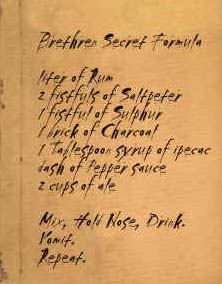 Brethren Secret Formula
liter of Rum
2 fistfuls of Saltpeter
1 fistful of Sulphur
1 brick of Charcoal
1 Tablespoon syrup of ipecac
dash of Pepper sauce
2 cups of ale
Mix, Hold Nose, Drink.
Vomit.
Repeat.